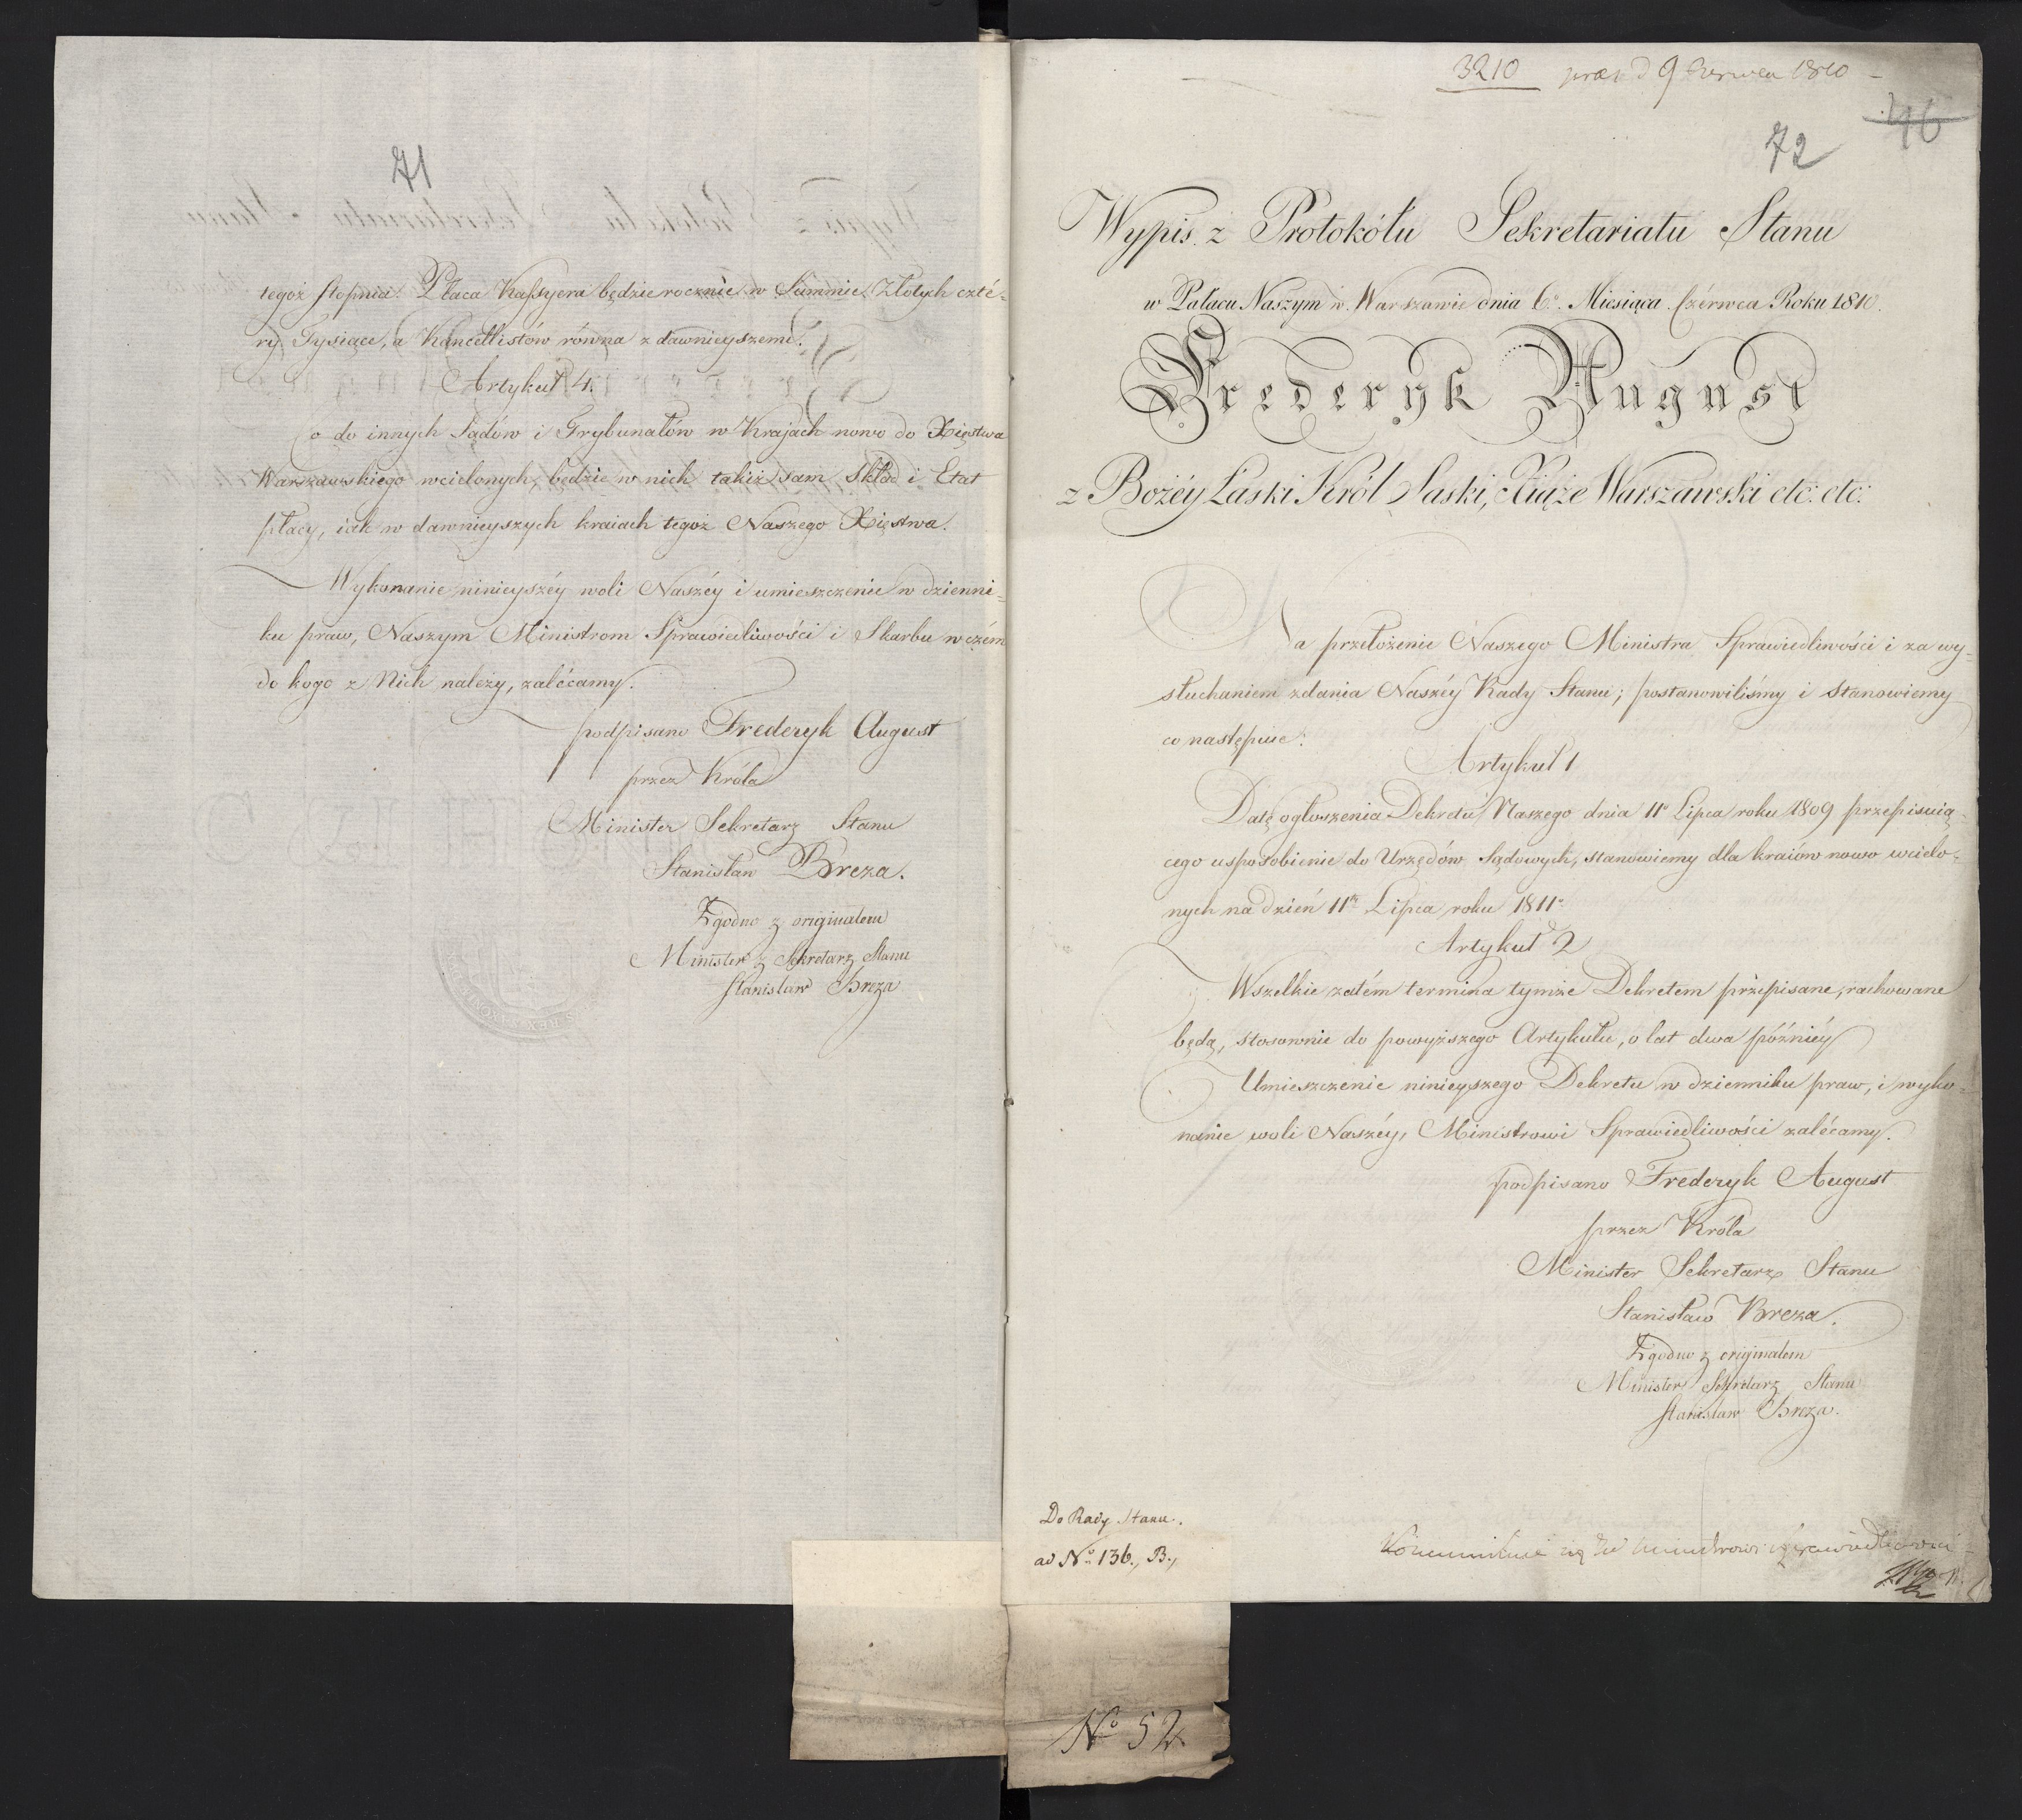 71
tegoż stopnia. Płaca Kassyera będzie rocznie w Summie Złotych czté-
ry Tysiące, a Kancellistów równa z dawnieyszemi.
Artykuł 4.
Co do innych Sądów i Trybunałów w Krajach nowo do Xięstwa
Warszawskiego wcielonych, będzie w nich takiż sam Skład i Etat
płacy, iak w dawnieyszych kraiach tegoż Naszego Xięstwa.
Wykonanie ninieyszéy woli Naszéy i umieszczenie w dzienni-
ku praw, Naszym Ministrom Sprawiedliwości i Skarbu w czém
do kogo z Nich należy, zalécamy.
podpisano Frederyk August
przez Króla
Minister Sekretarz Stanu
Stanisław Breza.
Zgodno z originałem
Minister Sekretarz Stanu
Stanisław Breza
3210 praes d 9 Czerwca 1810
46
72
Wypis z Protokółu Sekretariatu Stanu
w Pałacu Naszym w Warszawie dnia 6o. Miesiąca Czérwca Roku 1810.
Frederyk August
z Bożéy Łaski Król Saski, Xiąże Warszawski etc: etc:
Na przełożenie Naszego Ministra Sprawiedliwości i za wy-
słuchaniem zdania Naszéy Rady Stanu; postanowiliśmy i stanowiemy
co następuie:
Artykuł 1
Datę ogłoszenia Dekretu Naszego dnia 11o Lipca roku 1809 przepisuią-
cego usposobienie do Urzędów Sądowych, stanowiemy dla kraiów nowo wcielo-
nych na dzień 11ty Lipca roku 1811o
Artykuł 2
Wszelkie zatém termina tymże Dekretem przepisane, rachowane
będą, stosownie do powyższego Artykułu, o lat dwa późniéy
Umieszczenie ninieyszego Dekretu w dzienniku praw, i wyko-
nanie woli Naszéy, Ministrowi Sprawiedliwości zalécamy.
podpisano Frederyk August
przez Króla
Minister Sekretarz Stanu
Stanisław Breza.
Zgodno z originałem
Minister Sekretarz Stanu
Stanisław Breza.
Do Rady Stanu.
ad No 136., B.,
Kommunikuie się Ministrowi Sprawiedliwości
No 52.